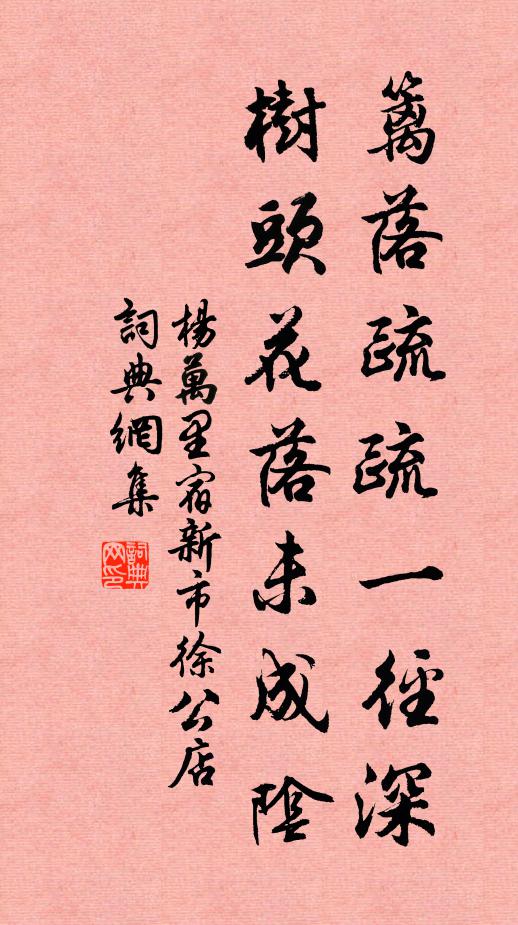 籬落疏疏一徑深
樹頭花落未成陰
楊萬里宿新市徐公店
詞典網集
詞典网印